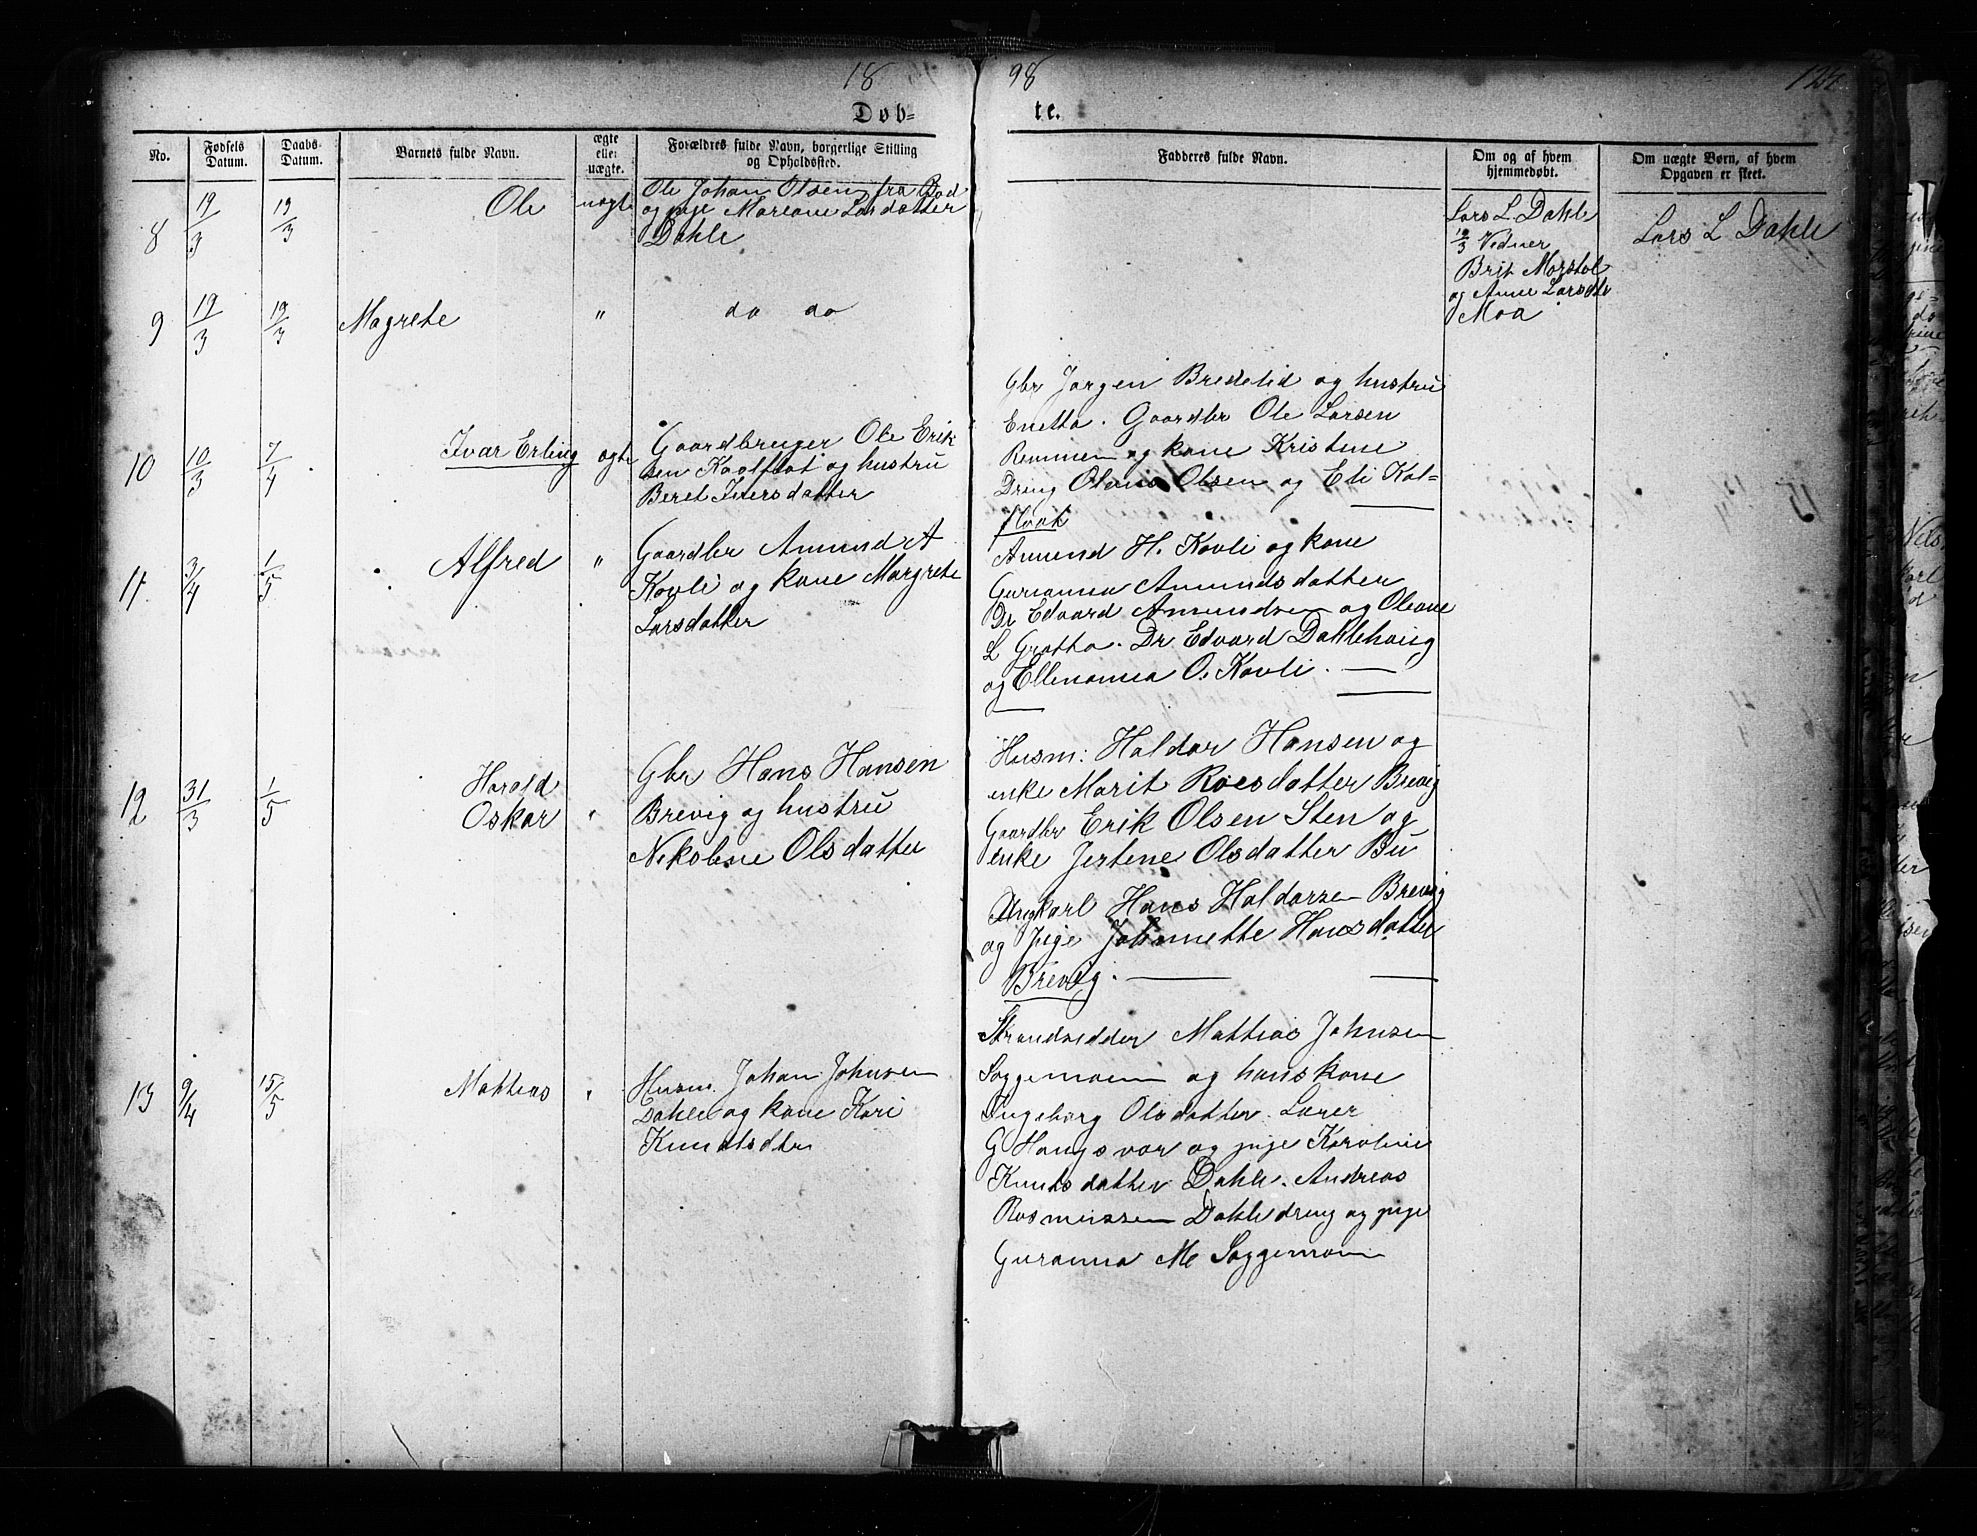 18 98
Døb= te.
No.
Fødsels Datum.
Daabs-Datum.
Barnets fulde Navn.
ægte eller uægte.
Forældres fulde Navn, borgerlige Stilling og Opholdssted.
Fadderes fulde Navn.
Om og af hvem hjemmedøbt.
Om uægte Børn, af hvem Opgaven er skeet.
8 19/3 19/3 Ole uægte
Ole Johan Olsen fra Bod
og pige Mareane Larsdatter
Dahle
Lars L Dahle
19/3 Vidner
Brit Morstøl
og Anne Larsdtr
Moa
Lars L Dahle
9 19/3 19/3 Magrete "
do do
10 10/3 7/4 Ivar Erling ægte
Gaardbruger Ole Erik
sen Kaalflot og hustru
Beret Iversdatter
Gbr Jørgen Bredelid og hustru
Enetta. Gaardbr Ole Larsen
Remmen og kone Kristine
Dreng Olaus Olsen og Eli Kal=
float
11 3/4 1/5 Alfred "
Gaardbr Amund A
Kavli og kone Margrete
Larsdatter
Amund H. Kavli og kone
Gurianna Amundsdatter
Dr Edvard Amundsen og Oleane
L Grøtta. Dr Edvard Dahlehaug
og Ellenanna O. Kavli.
12 31/3 1/5
Harald
Oskar "
Gbr Hans Hansen
Brevig og hustru
Nikoline Olsdatter
Husm: Haldor Hansen og
enke Marit Roesdatter Brevig
Gaardbr Erik Olsen Sten og
enke Jertine Olsdatter Bu
Ungkarl Hans Haldorsen Brevig
og Pige Johannette Hansdatter
Brevig.
13 9/4 15/5 Mathias "
Husm. Johan Johnsen
Dahle og kone Kari
Knudtsdtr
Strandsidder Mathias Johnsen
Soggemoen og hans kone
Ingeborg Olsdatter. Lærer
G Haugsvor og pige Karoline
Knutsdatter Dahle. Andreas
Rasmussen Dahle dreng og pige
Guranna M Soggemoen